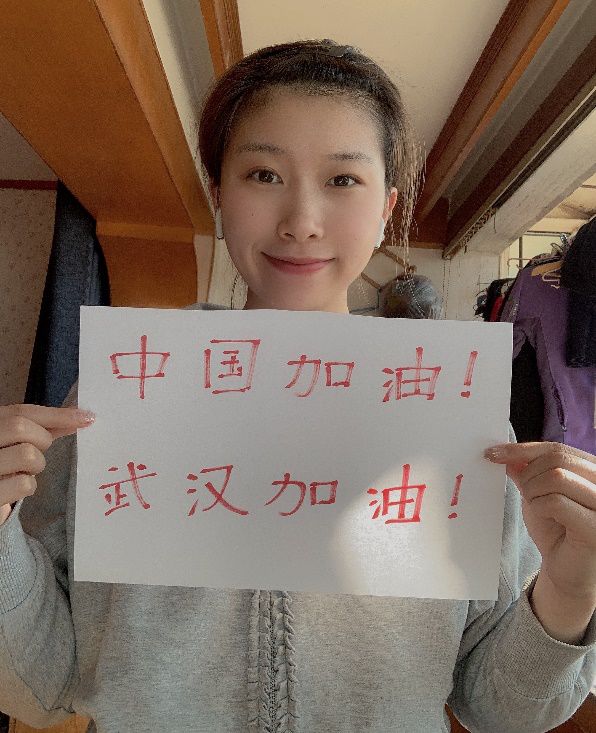 中国加油！
武汉加油！